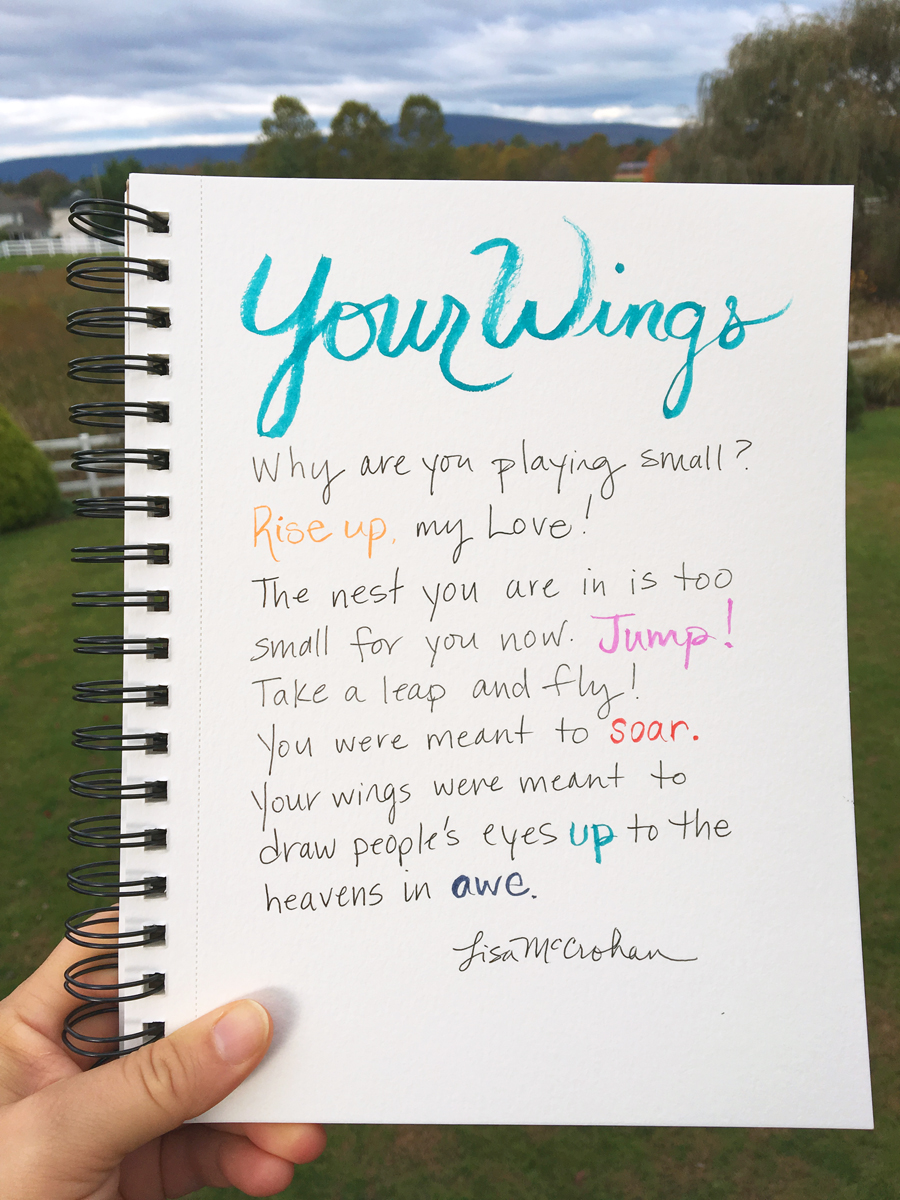 Your Wings
Why are you playing small?
Rise up, my Love!
The nest you are in is too
small for you now. Jump!
Take a leap and fly!
You were meant to soar.
Your wings were meant to
draw people's eyes up to the
heavens in awe.
Lisa McCrohan